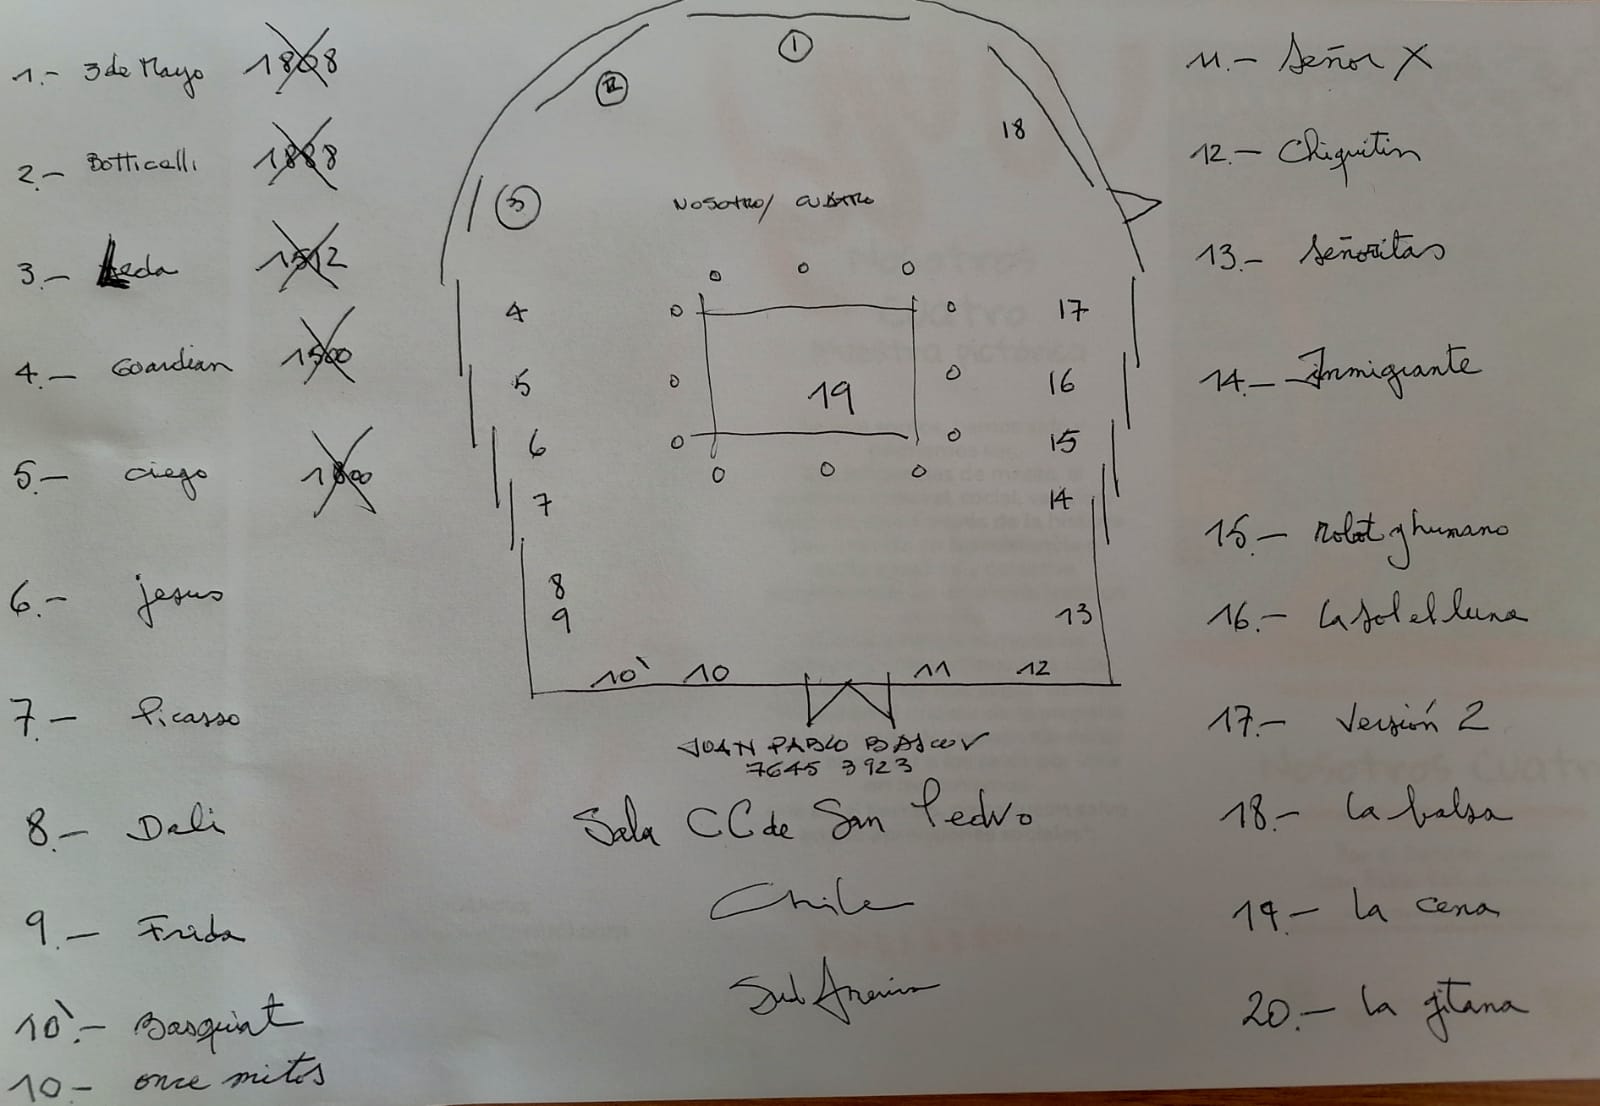 1.- 3 de Mayo 1808
2.- Botticelli 1888
3.- Leda 1512
4.- Guardian 1500
5.- ciego 1800
6.- jesus
7.- Picasso
8.- Dali
9.- Frida
10`.- Basquiat
10- once mitos
1
2
3
18
NOSOTRO/ CUATRO
4
17
5
16
19
6
15
7
14
8
9
13
10` 10 11 12
JUAN PABLO BASCUV
7645 3923
Sala CC de San Pedro
Chile
Sud America
11.- Señor X
12.- Chiquitin
13.- Señoritas
14.- Inmigrante
15.- robot y humano
16.- La sol el luna
17.- Versión 2
18.- La balsa
19- La cena
20.- La gitana